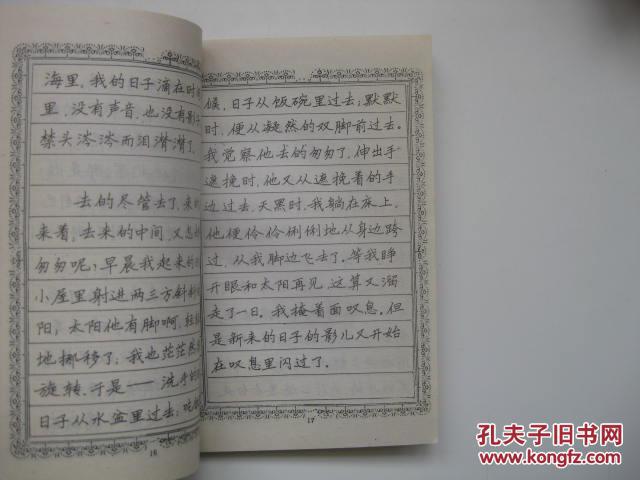 海里,我的日子滴在时
里,没有声音,也没有影子
禁头涔涔而泪潸潸了。
去的尽管去了,来的
来着,去来的中间,又怎
匆匆呢?早晨我起来的
小屋里射进两三方斜斜
阳,太阳他有脚啊,轻轻
地挪移了;我也茫茫然
旋转.于是——洗手的
日子从水盆里过去;吃
16
候,日子从饭碗里过去;默默
时,便从凝然的双脚前过去。
我觉察他去的匆匆了,伸出手
遮挽时,他又从遮挽着的手
边过去,天黑时,我躺在床上,
他便伶伶俐俐地从身边跨
过,从我脚边飞去了。等我睁
开眼和太阳再见,这算又溜
走了一日。我掩着面叹息。但
是新来的日子的影儿又开始
在叹息里闪过了。
17
孔夫子旧书网
www.kongfz.com